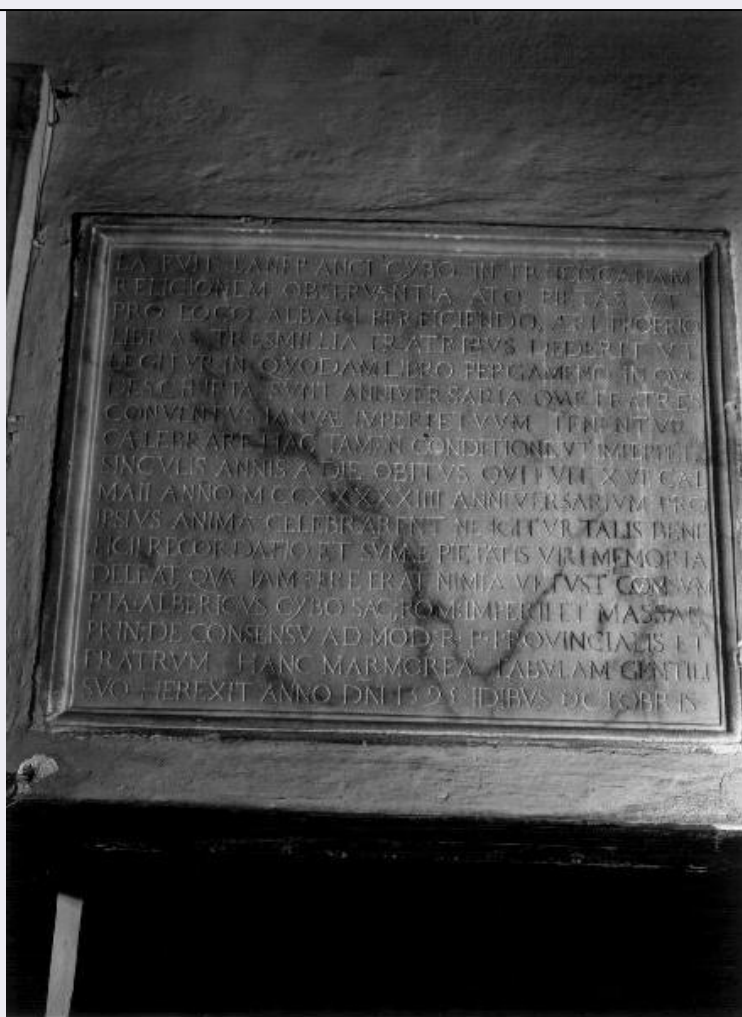 EA FVIT LANFRANCI CYBO IN FRANCISCANAM
RELIGIONEM OBSERVANTIA ATQ PIETAS VT
PRO LOCO ALBARI PERFICIENDO, PROPRIO
LIBRAS TRESMILLIA FRATRIBVS DEDERIT VT
LEGITVR IN QVODAM LIBRO PERGAMENO IN QVO
DESCRIPTA SVNT ANNIVERSARIA QVAE FRATRES
CONVENTVS IANVAE TENENTVR
CAELEBRARE HAC TAMEN CONDITIONE VT
SINGVLIS ANNIS A DIE OBITVS QVI FVIT XVI CAL
MAII ANNO M CCXXXXXIIII ANNIVERSARIVM PRO
IPSIVS ANIMA CELEBRARENT NE IGITVR TALIS BENE
FICII RECORDATIO ET SVMAE PIETATIS VIRI MEMORIA
DELEAT QVAE IAM FERE ERAT NIMIA VETVST CONSVM
PTA ALBERICVS CYBO SAC ROM IMPERII ET MASSAE
PRIN: DE CONSENSV AD MOD R P PROVINCIALIS ET
FRATRVM HANC MARMOREA TABVLAM GENTILI
SVO EREXIT ANNO DNI IDIBVS OCTOBRIS